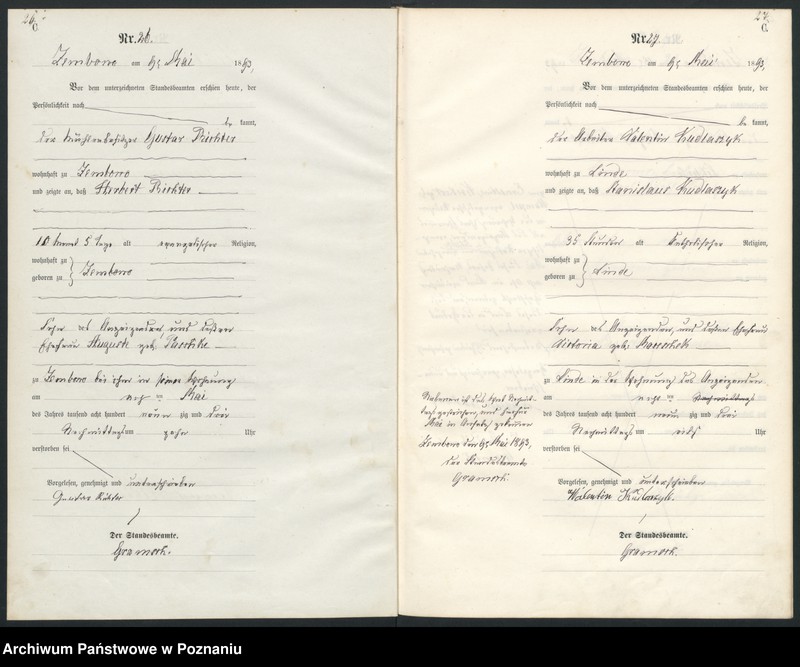 26.
C.
Nr. 26.
Zembowo am 9ten Mai 1893,
Vor dem unterzeichneten Standesbeamten erschien heute, der
Persönlichkeit nach
be kannt,
der Mühlenbesitzer Gustav Richter
wohnhaft zu Zembowo
und zeigte an, daß Herbert Richter
10 Monat 5 Tage alt evangelischer Religion,
wohnhaft zu
geboren zu Zembowo
Sohn des Anzeigenden und dessen
Ehefrau Auguste geb.
zu Zembowo bei ihm in seiner Wohnung
am Mai
des Jahres tausend acht hundert neun zig und drei
Nachmittags um zehn Uhr
verstorben sei
Vorgelesen, genehmigt und unterschrieben
Gustav Richter
Der Standesbeamte.
27.
C.
Nr. 27.
Zembowo am 9ten Mai 1893,
Vor dem unterzeichneten Standesbeamten erschien heute, der
Persönlichkeit nach
be kannt,
der Arbeiter Valentin Kudlaszyk
wohnhaft zu Linde
und zeigte an, daß Stanislaus Kudlaszyk
35 Stunden alt katholischer Religion,
wohnhaft zu
geboren zu Linde
Sohn des Anzeigenden, und dessen Ehefrau
Victoria geb.
zu Linde in der Wohnung des Anzeigenden
am Nachmittags
des Jahres tausend acht hundert neun zig und drei
Nachmittags um Uhr
verstorben sei
Vorgelesen, genehmigt und unterschrieben
Walentin Kudlaszyk.
Der Standesbeamte.
Nebenan ist das Wort
gestrichen, und dafür
Mai
Zembowo den 9ten Mai 1893,
Der Standesbeamte
Archiwum Państwowe w Poznaniu